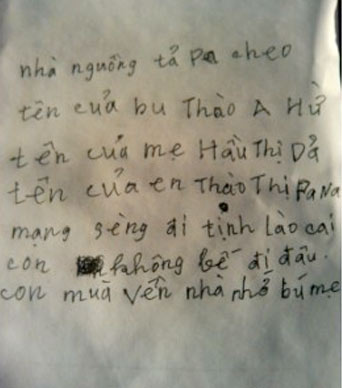 nhà nguông tả Pa cheo
tên cuả bu Thào A Hử
tên cuả mẹ Hầu Thị Dả
tên cuả en Thào Thị Pa Na
mạng sèng đi tịnh lào cai
con không bê đi đâu.
con muà vên nhà nhớ bú mẹ